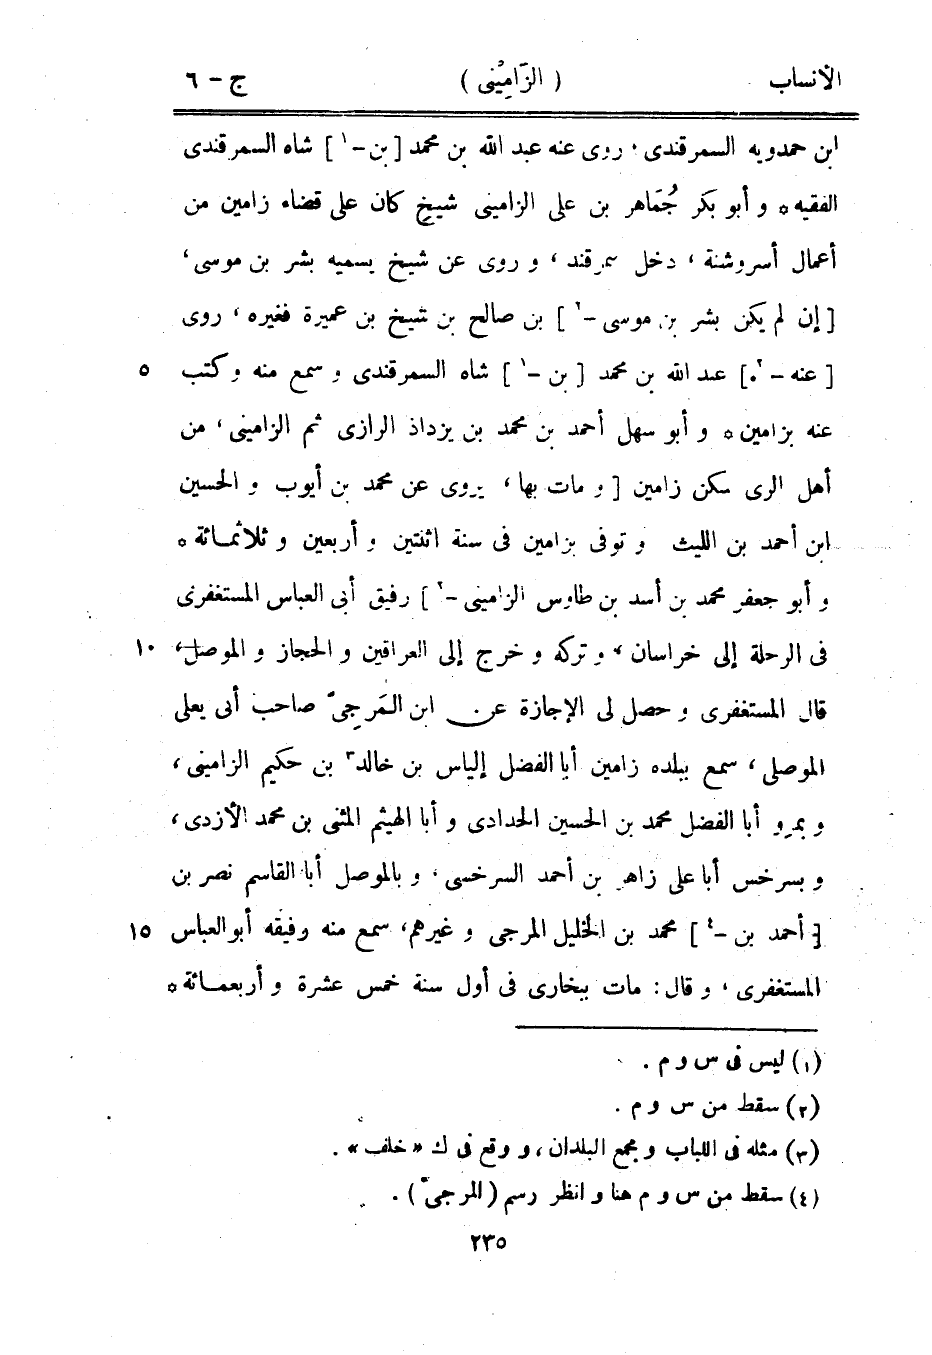 الأنساب ( الزّامِيْنى ) ج - ٦
ابن حمدويه السمرقندى، روى عنه عبد الله بن محمد [ بن -١ ] شاه السمرقندى
الفقيه * و أبو بكر جُمَاهر بن على الزامينى شيخ كان على قضاء زامين من
أعمال أسروشنة ، دخل سمرقند ، و روى عن شيخ يسميه بشر بن موسى ،
[ إن لم يكن بشر بن موسى -٢ ] بن صالح بن شيخ بن عميرة فغيره ، روى
[ عنه -٢ ] عبد الله بن محمد [ بن -١ ] شاه السمرقندى و سمع منه و كتب ٥
عنه بزامين * و أبو سهل أحمد بن محمد بن يزداذ الرازى ثم الزامينى ، من
أهل الرى سكن زامين [ و مات بها ، يروى عن محمد بن أيوب و الحسين
ابن أحمد بن الليث و توفى بزامين فى سنة اثنتين و أربعين و ثلاثمائة *
و أبو جعفر محمد بن أسد بن طاوس الزامينى -٢ ] رفيق أبى العباس المستغفرى
فى الرحلة إلى خراسان ، و تركه و خرج إلى العراقين و الحجاز و الموصل ، ١٠
قال المستغفرى و حصل لى الإجازة عن ابن المَرجىّ صاحب أبى يعلى
الموصلى ، سمع ببلده زامين أبا الفضل إلياس بن خالد٣ بن حكيم الزامينى ،
و بمرو أبا الفضل محمد بن الحسين الحدادى و أبا الهيثم المثنى بن محمد الأزدى ،
و بسرخس أبا على زاهر بن أحمد السرخسى ، و بالموصل أبا القاسم نصر بن
[ أحمد بن -٤ ] محمد بن الخليل المرجى و غيرهم ، سمع منه رفيقه أبو العباس ١٥
المستغفرى ، و قال : مات ببخارى فى أول سنة خمس عشرة و أربعمائة *
(١) ليس فى س و م .
(٢) سقط من س و م .
(٣) مثله فى اللباب و معجم البلدان ، و وقع فى ك « خلف » .
(٤) سقط من س و م هنا و انظر رسم ( المرجىّ ) .
٢٣٥